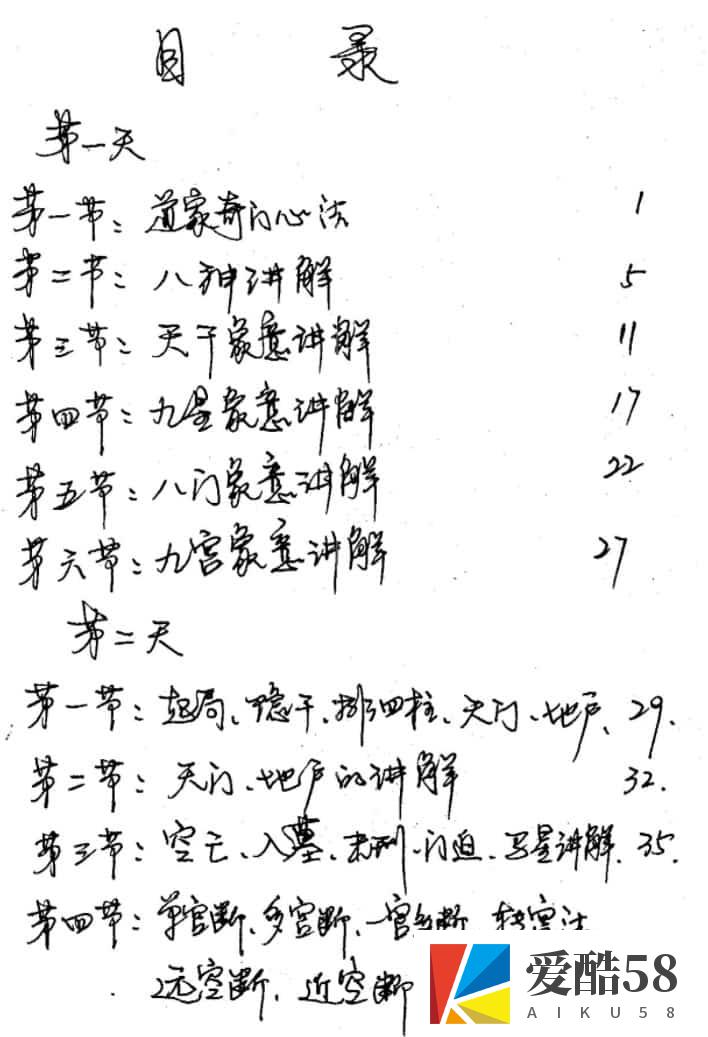 目 录
第一天
第一节：道家奇门心法 1
第二节：八神讲解 5
第三节：天干象意讲解 11
第四节：九星象意讲解 17
第五节：八门象意讲解 22
第六节：九宫象意讲解 27
第二天
第一节：起局、隐干、排四柱、天门、地户、29.
第二节：天门、地户的讲解 32.
第三节：空亡、入墓、击刑、门迫、马星讲解、35.
第四节：单宫断、多宫断、一宫多断、转宫法
远空断、近空断
爱酷58
AIKU58